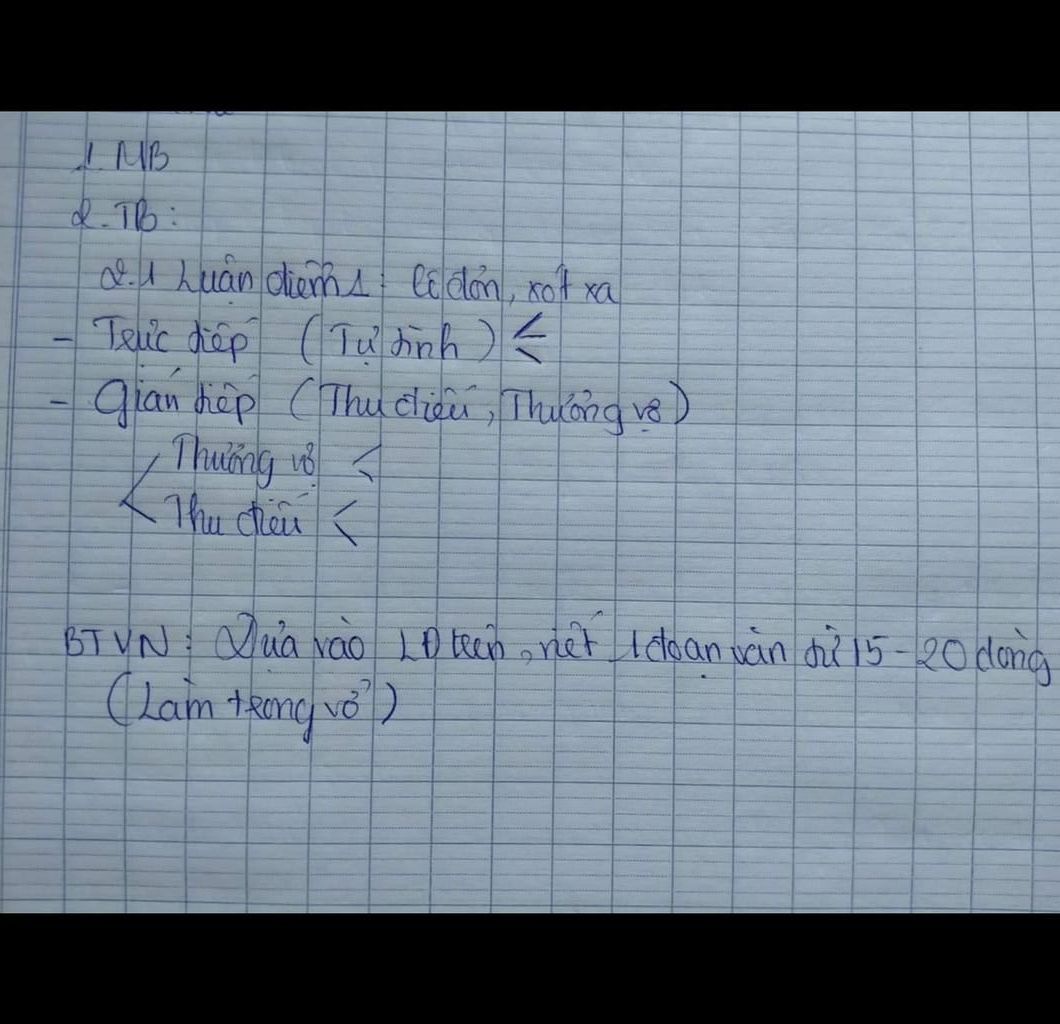 1. MB
2. TB:
2.1 Luận điểm 1: Cô đơn, xót xa
- Trực tiếp (Tự tình) <
- Gián tiếp (Thu điếu, Thương vợ)
Thương vợ <
< Thu điếu <
BTVN: Dựa vào LĐ trên, viết 1 đoạn văn từ 15-20 dòng
(Làm trong vở)